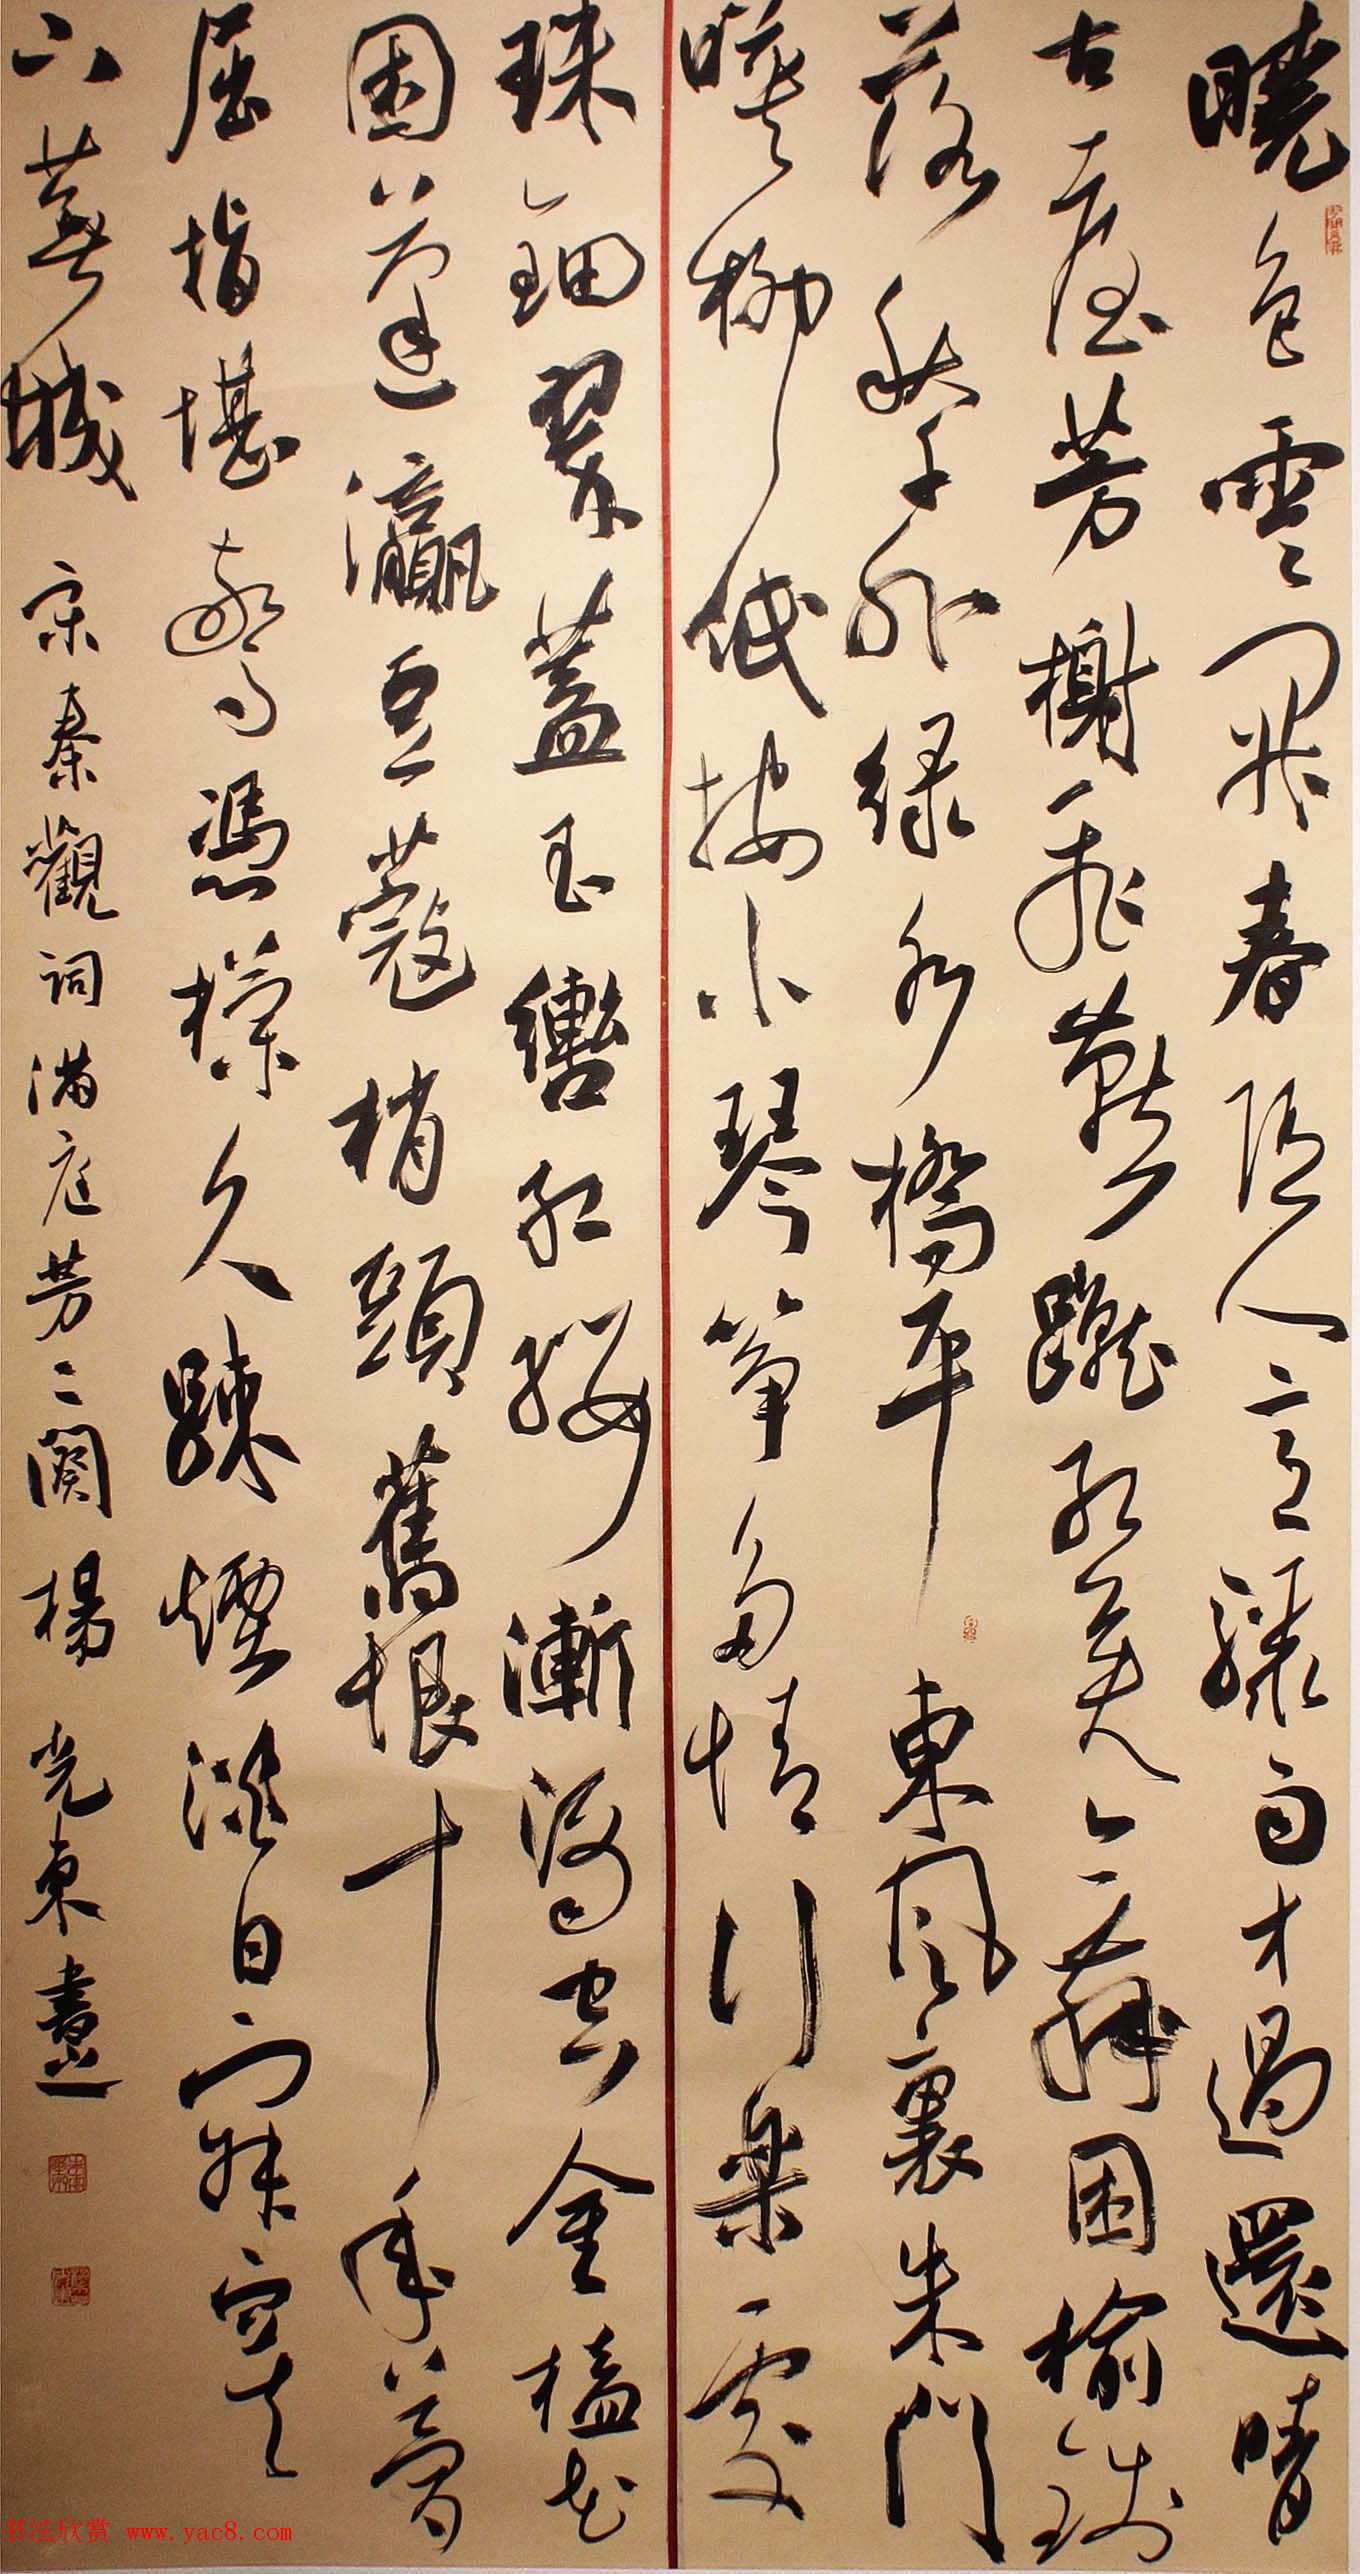 曉色雲開春随人意驟雨才過還晴
古臺芳榭飛燕蹴紅英舞困榆錢
落秋千外绿水橋平 東風裏朱門
暎柳低按小琴筝多情行樂處
珠鈿翠蓋玉轡紅纓漸酒空金榼花
困蓬瀛豆蔻梢頭舊恨十年夢
屈指堪驚馮欄久疎煙淡日寂寞
下蕪城 宋秦觀词满庭芳二闋楊光東書
书法欣赏 www.yac8.com